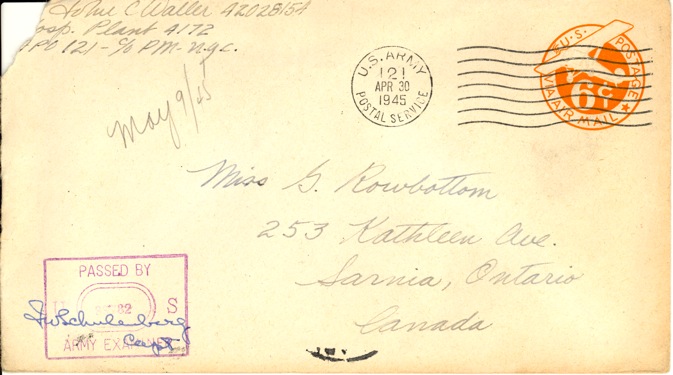 John C Waller 42028154
Hosp. Plant 4172
APO 121 - c/o P.M. - N.Y.C.
May 9/45
U.S. ARMY
121
APR 30
1945
POSTAL SERVICE
U.S. POSTAGE
6¢
VIA AIR MAIL
Miss G. Rowbottom
253 Kathleen Ave.
Sarnia, Ontario
Canada
PASSED BY
U S
Capt
ARMY EXAMINER